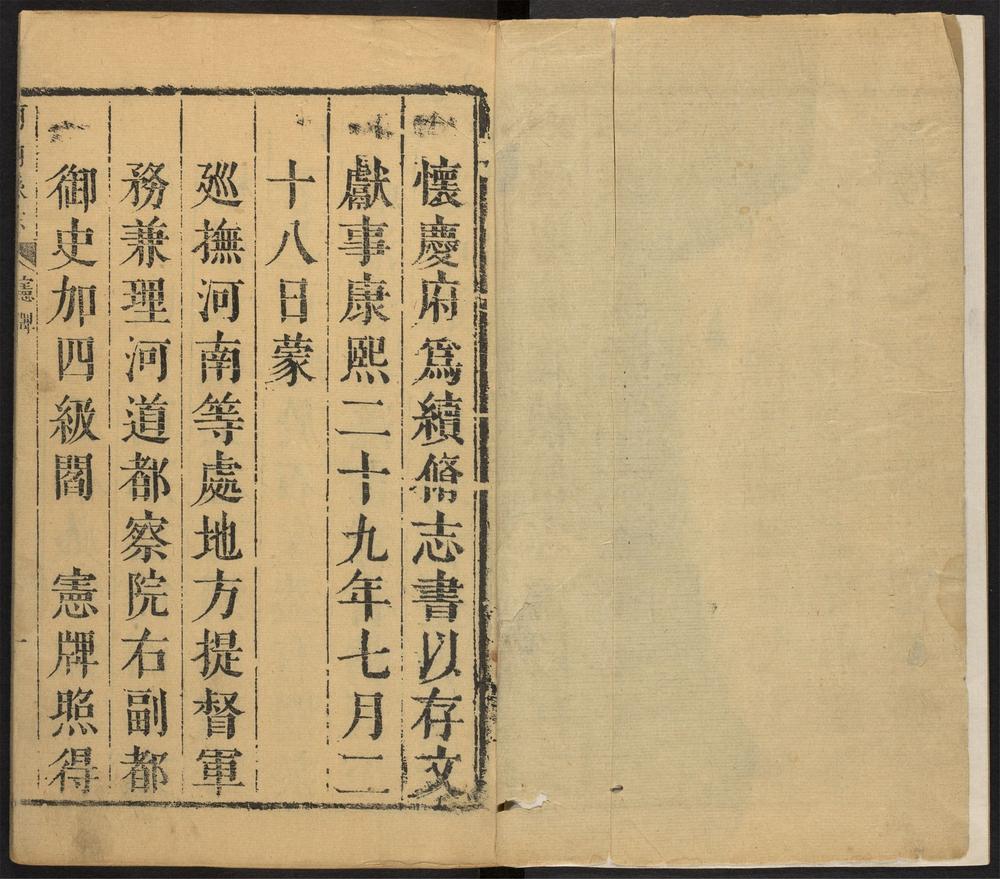 懷慶府爲續脩志書以存文
獻事康熙二十九年七月二
十八日蒙
廵撫河南等處地方提督軍
務兼理河道都察院右副都
御史加四級閻　憲牌照得
憲牌
一